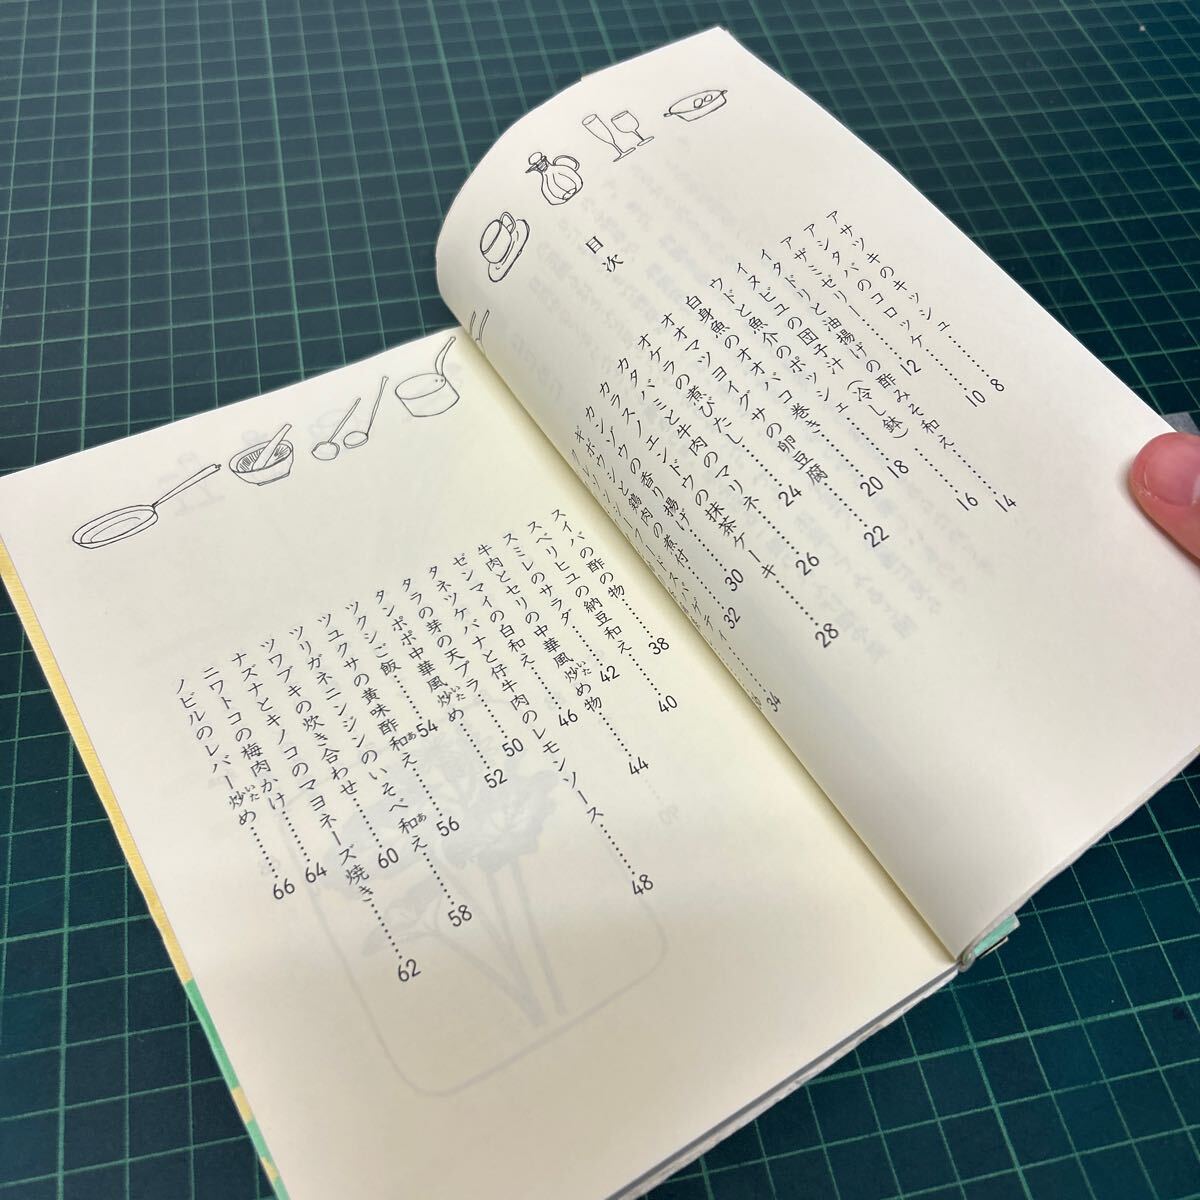 目次
アサツキのキッシュ……8
アシタバのコロッケ……10
アザミゼリー……12
イタドリと油揚げの酢みそ和え……14
イヌビユの団子汁(冷し鉢)……16
ウドと魚介のポッシェ……18
白身魚のオオバコ巻き……20
オオマツヨイグサの卵豆腐……22
オケラの煮びたし……24
カタバミと牛肉のマリネ……26
カラスノエンドウの抹茶ケーキ……28
カンゾウの香り揚げ……30
ギボウシと鶏肉の煮付……32
スパゲティ……34
スイバの酢の物……38
スベリヒユの納豆和え……40
スミレのサラダ……42
牛肉とセリの中華風炒いため物……44
ゼンマイの白和え……46
タネツケバナと仔牛肉のレモンソース……48
タラの芽の天プラ……50
タンポポ中華風炒いため……52
ツクシご飯……54
ツユクサの黄味酢和あえ……56
ツリガネニンジンのいそべ和あえ……58
ツワブキの炊き合わせ……60
ナズナとキノコのマヨネーズ焼き……62
ニワトコの梅肉かけ……64
ノビルのレバー炒いため……66